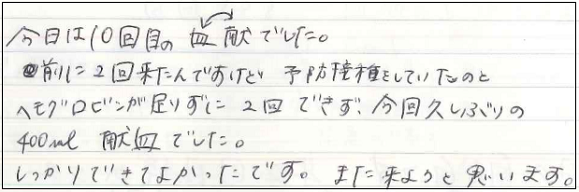 今日は10回目の 血献でした。
前に2回来たんですけど 予防接種をしていたのと
ヘモグロビンが足りずに 2回 できず、今回久しぶりの
400ml 献血でした。
しっかりできてよかったです。 また来ようと思います。